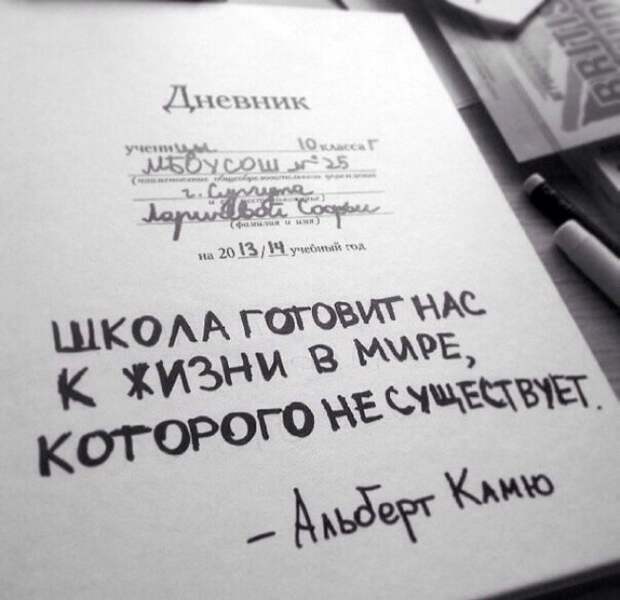 Дневник
ученицы 10 класса Г
МБОУСОШ № 25
(наименование общеобразовательного учреждения
г. Сургута
и местоположение)
Софьи
(фамилия и имя)
на 20 13/14 учебный год
ШКОЛА ГОТОВИТ НАС
К ЖИЗНИ В МИРЕ,
КОТОРОГО НЕ СУЩЕСТВУЕТ.
– Альберт Камю